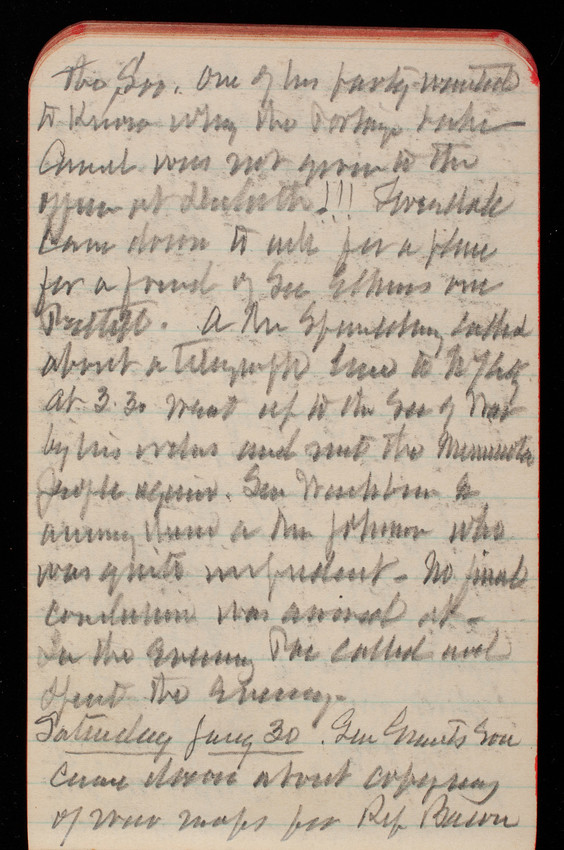 the Soo. One of his party wanted
to know why the Portage Lake
Canal was not given to the
officer at Duluth!!! Lvendale
came down to ask for a place
for a friend of Sec Elkins one
A Mr Spaulding called
about a telegraph line to
At 3.30 went up to the Sec of War
by his orders and met the Minnesota
people again. Gen Washburn &
among them a Mr Johnson who
was quite impudent - No final
conclusion was arrived at -
In the evening called and
spent the evening.
Saturday Jany 30. Gen Grants Son
came down about copying
of war maps for Rep Bacon